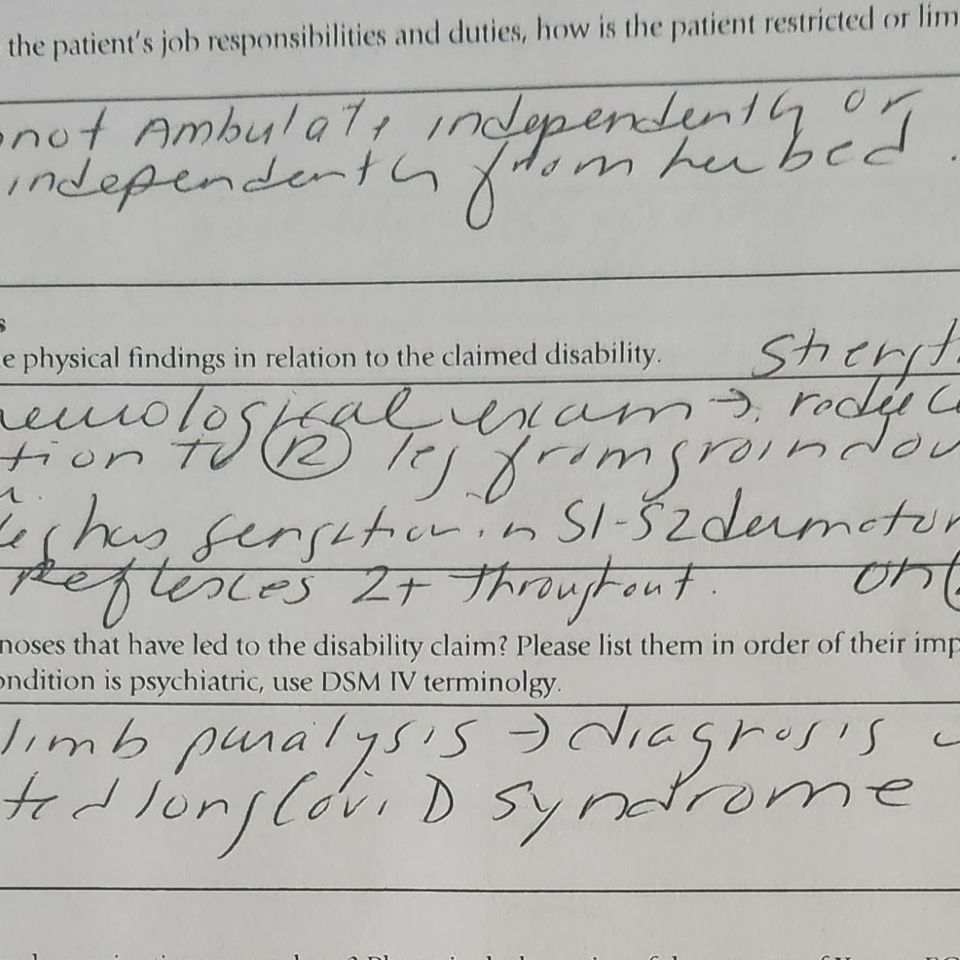 the patient's job responsibilities and duties, how is the patient restricted or lim
not Ambulate independently or
independently from her bed.
s
e physical findings in relation to the claimed disability. Strength
neurological exam → reduce
tion to R leg from groin dow
leg has sensation in S1-S2 dermatom
Reflexes 2+ throughout. on
noses that have led to the disability claim? Please list them in order of their imp
ondition is psychiatric, use DSM IV terminolgy.
limb paralysis → diagnosis
ted long CoviD syndrome